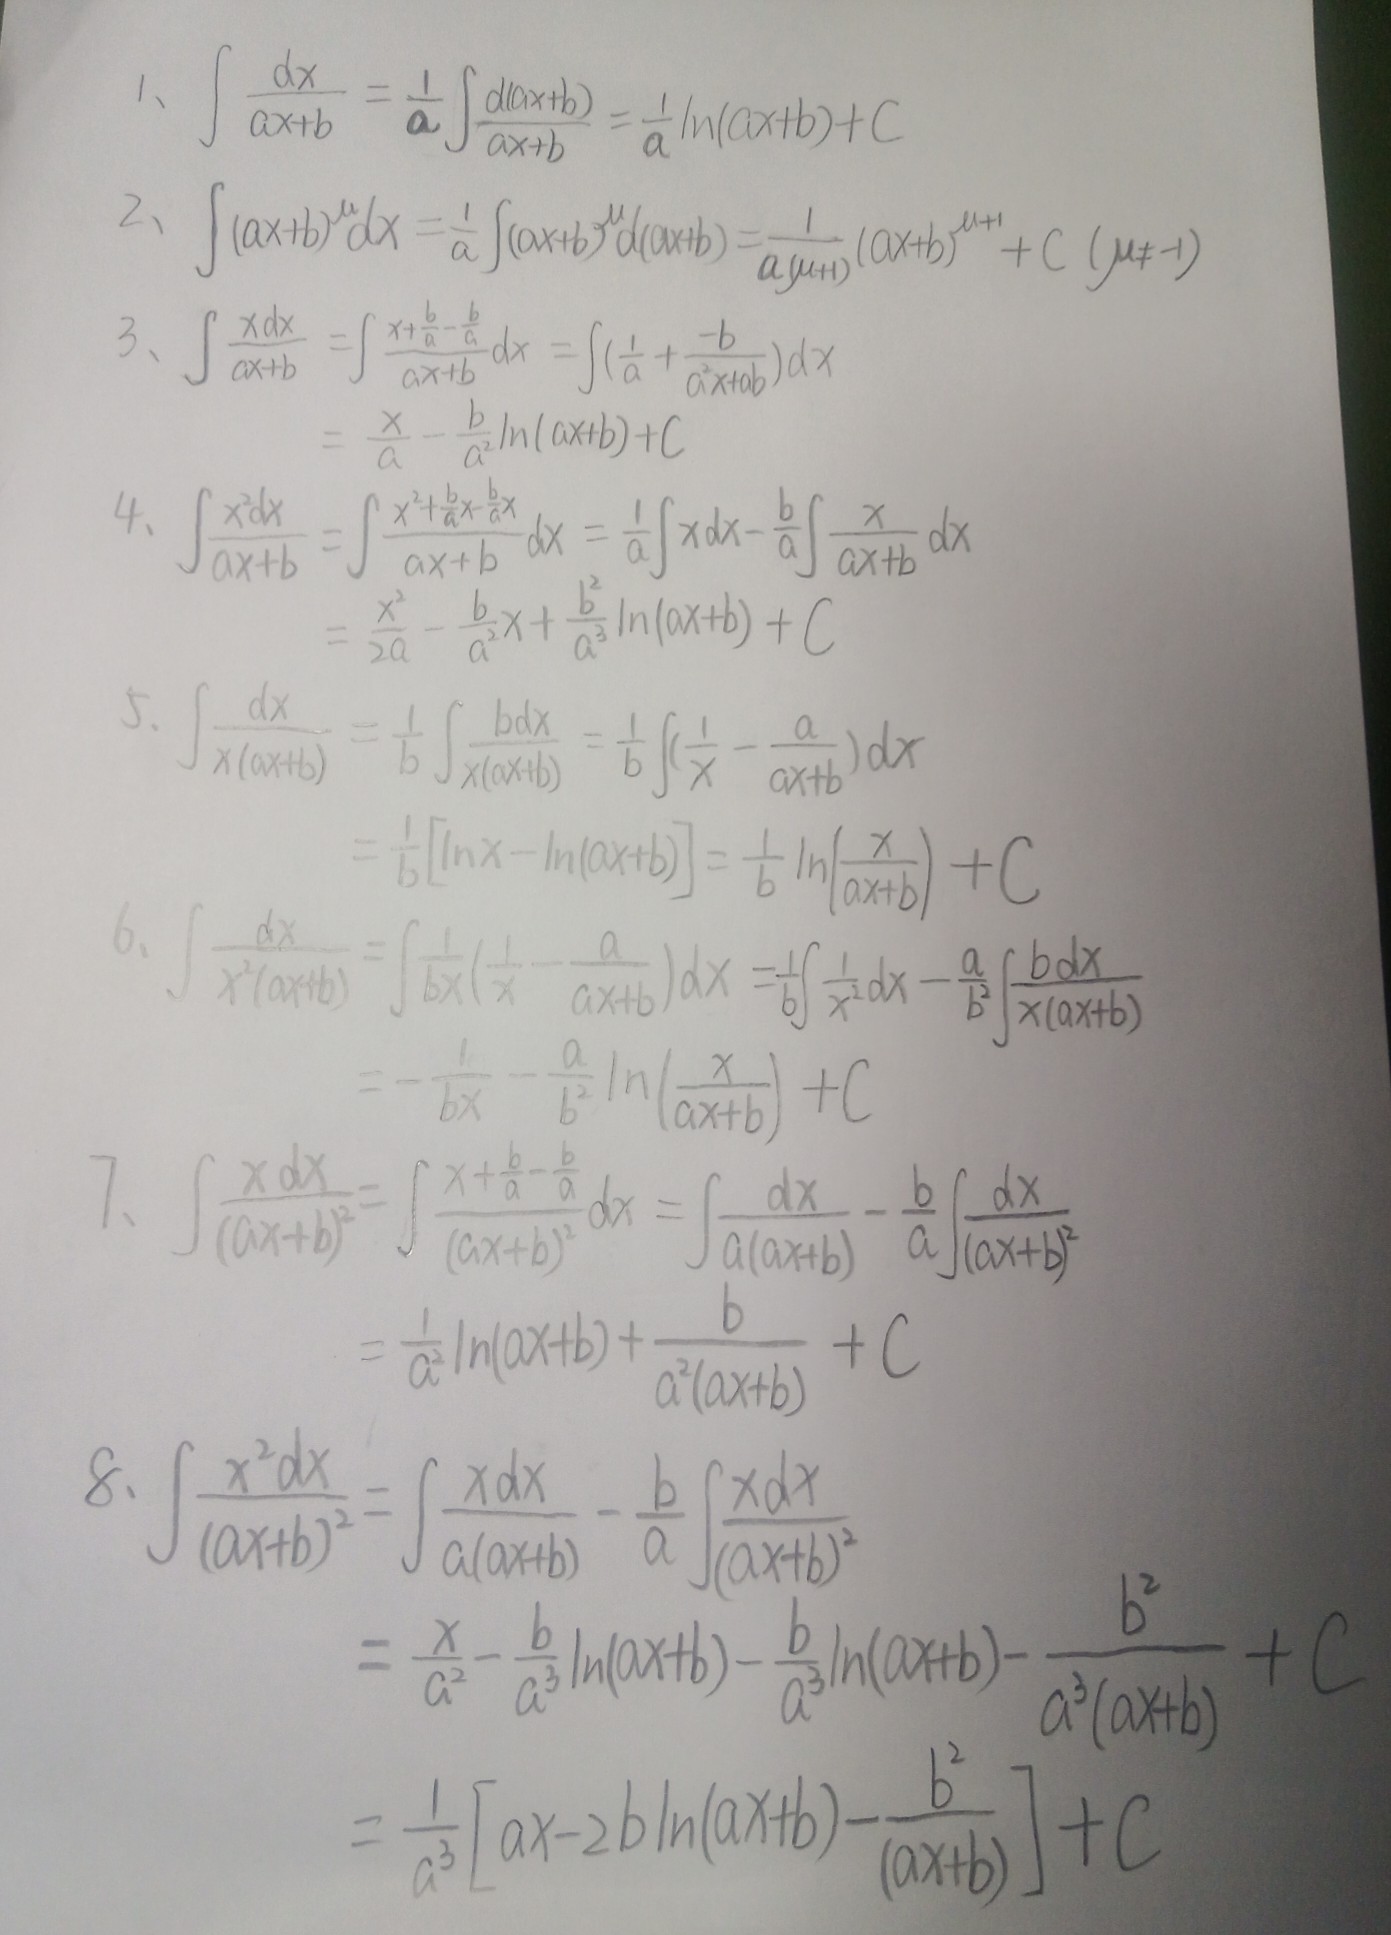 1、∫ dx/(ax+b) = 1/a ∫ d(ax+b)/(ax+b) = 1/a ln(ax+b)+C
2、∫(ax+b)^μ dx = 1/a ∫(ax+b)^μ d(ax+b) = 1/(a(μ+1)) (ax+b)^(μ+1) + C (μ≠-1)
3、∫ xdx/(ax+b) = ∫ (x+b/a-b/a)/(ax+b) dx = ∫(1/a + -b/(a²x+ab))dx
= x/a - b/a² ln(ax+b)+C
4、∫ x²dx/(ax+b) = ∫ (x²+b/a x-b/a x)/(ax+b) dx = 1/a ∫xdx - b/a ∫ x/(ax+b) dx
= x²/2a - b/a² x + b²/a³ ln(ax+b) + C
5、∫ dx/(x(ax+b)) = 1/b ∫ bdx/(x(ax+b)) = 1/b ∫(1/x - a/(ax+b))dx
= 1/b [lnx-ln(ax+b)] = 1/b ln(x/(ax+b)) + C
6、∫ dx/(x²(ax+b)) = ∫ 1/bx (1/x - a/(ax+b))dx = 1/b ∫ 1/x² dx - a/b² ∫ bdx/(x(ax+b))
= - 1/bx - a/b² ln(x/(ax+b)) + C
7、∫ xdx/(ax+b)² = ∫ (x+b/a-b/a)/(ax+b)² dx = ∫ dx/(a(ax+b)) - b/a ∫ dx/(ax+b)²
= 1/a² ln(ax+b) + b/(a²(ax+b)) + C
8、∫ x²dx/(ax+b)² = ∫ xdx/(a(ax+b)) - b/a ∫ xdx/(ax+b)²
= x/a² - b/a³ ln(ax+b) - b/a³ ln(ax+b) - b²/(a³(ax+b)) + C
= 1/a³ [ax-2bln(ax+b) - b²/(ax+b)] + C